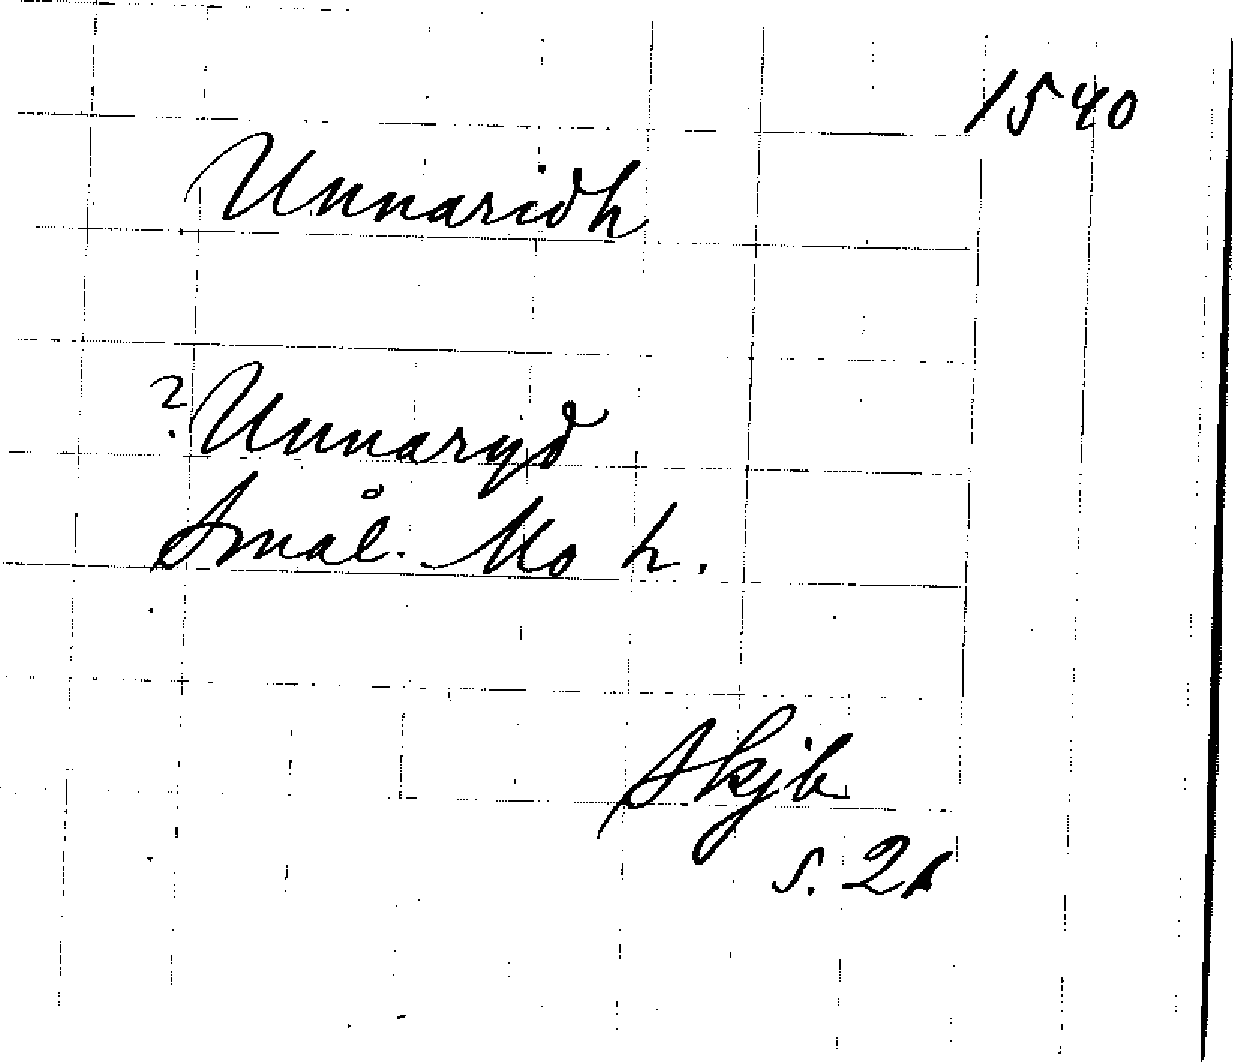 1540
Unnaridh
? Unnaryd
Smål. Mo h.
Skjb
s. 21